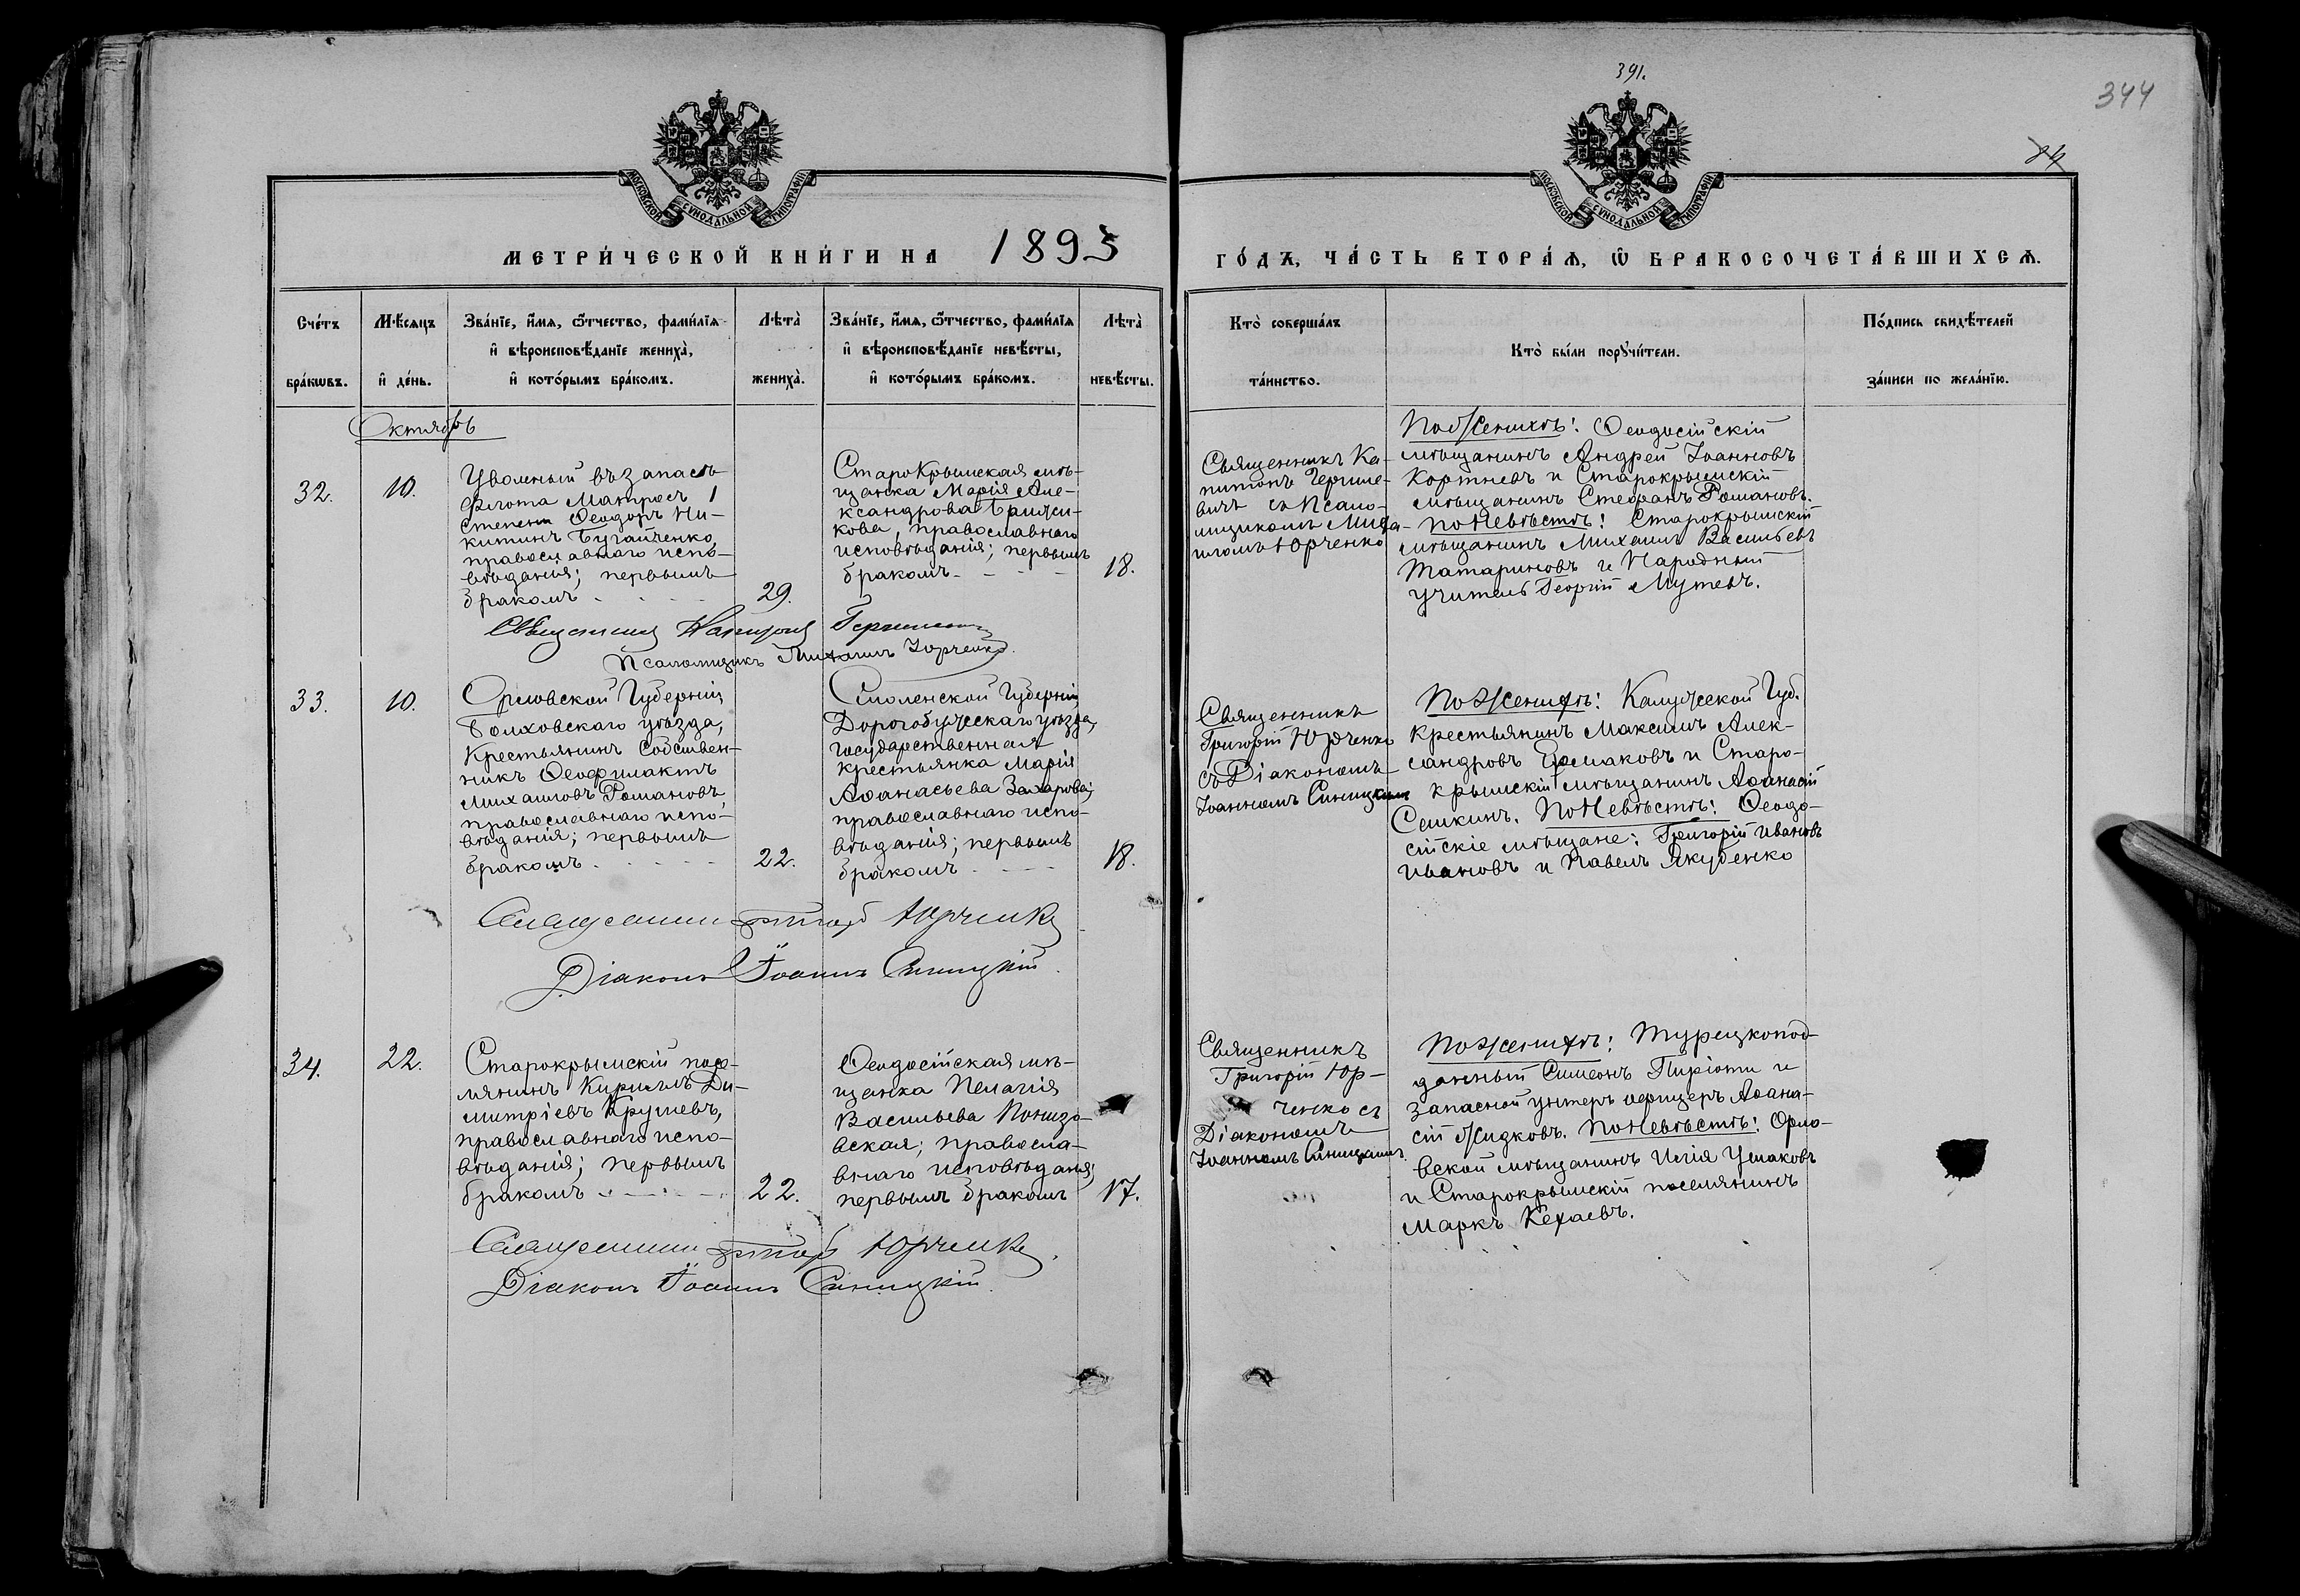 391.
344
84
МОСКОВСКОЙ СѴНОДАЛЬНОЙ ТИПОГРАФІИ
МОСКОВСКОЙ СѴНОДАЛЬНОЙ ТИПОГРАФІИ
МЕТРИ́ЧЕСКОЙ КНИ́ГИ НА 1893
ГО́ДЪ, ЧА́СТЬ ВТОРА́Ѧ, Ѡ҆ БРАКОСОЧЕТА́ВШИХСѦ.
Сче́тъ
бра́кѡвъ.
Мѣ́сѧцъ
и҆ де́нь.
Зва́нїе, и҆́мѧ, ѻ҆́тчество, фами́лїѧ
и҆ вѣроисповѣ́данїе жениха̀,
и҆ кото́рымъ бра́комъ.
Лѣта̀
жениха̀.
Зва́нїе, и҆́мѧ, ѻ҆́тчество, фами́лїѧ
и҆ вѣроисповѣ́данїе невѣ́сты,
и҆ кото́рымъ бра́комъ.
Лѣта̀
невѣ́сты.
Кто̀ соверша́лъ
та́инство.
Кто̀ бы́ли порꙋчи́тели.
По́дпись свидѣ́телей
за́писи по жела́нїю.
Октябрь
32.
10.
Уволеный въ запасъ
флота Матросъ 1
степени Ѳеодоръ Ни-
китинъ Бугайченко,
православнаго испо-
вѣданія; первымъ
бракомъ
29.
СтароКрымская мѣ-
щанка Марія Але-
ксандрова
кова, православнаго
исповѣданія; первымъ
бракомъ
18.
Священникъ Ка-
питонъ Герине-
вичъ съ Псало-
мщикомъ Миха-
иломъ Юрченко
По Женихѣ: Ѳеодосійскій
мѣщанинъ Андрей Іоанновъ
Кортневъ и Старокрымскій
мѣщанинъ Стефанъ Романовъ.
по Невѣстѣ: Старокрымскій
мѣщанинъ Михаилъ Васильевъ
Татариновъ и Народный
учитель Георгій Мутевъ.
Священникъ Капитонъ
Псаломщикъ Михаилъ Юрченко.
33.
10.
Орловской Губерніи,
Болховскаго уѣзда,
Крестьянинъ Собствен-
никъ Ѳеофилактъ
Михаиловъ Романовъ,
православнаго испо-
вѣданія; первымъ
бракомъ
22.
Смоленской Губерніи
Дорогобужскаго уѣзда,
государственная
крестьянка Марія
Аѳанасьева Захарова;
православнаго испо-
вѣданія; первымъ
бракомъ
18.
Священникъ
Григорій Юрченко
съ Діакономъ
Іоанномъ Синицкимъ
По Женихѣ: Калужской Губ.
крестьянинъ Максимъ Алек-
сандровъ Ермаковъ и Старо-
крымскій мѣщанинъ Аѳанасій
Семкинъ. По Невѣстѣ: Ѳеодо-
сійскіе мѣщане: Григорій Ивановъ
Ивановъ и Павелъ Якубенко
Священникъ Григорій Юрченко
Діаконъ Іоаннъ Синицкій.
34.
22.
Старокрымскій посе-
лянинъ Кириллъ Ди-
митріевъ Крушевъ,
православнаго испо-
вѣданія; первымъ
бракомъ
22.
Ѳеодосійская мѣ-
щанка Пелагія
Васильева Понизо-
вская; правосла-
внаго исповѣданія;
первымъ бракомъ
17.
Священникъ
Григорій Юр-
ченко съ
Діакономъ
Іоанномъ Синицкимъ
По Женихѣ: Турецкопод-
данный Симеонъ Пиріоти и
запасной унтеръ офицеръ Аѳана-
сій Жидковъ. По Невѣстѣ: Орло-
вской мѣщанинъ Илія Ушаковъ
и Старокрымскій поселянинъ
Маркъ Кехаевъ.
Священникъ Григорій Юрченко.
Діаконъ Іоаннъ Синицкій.